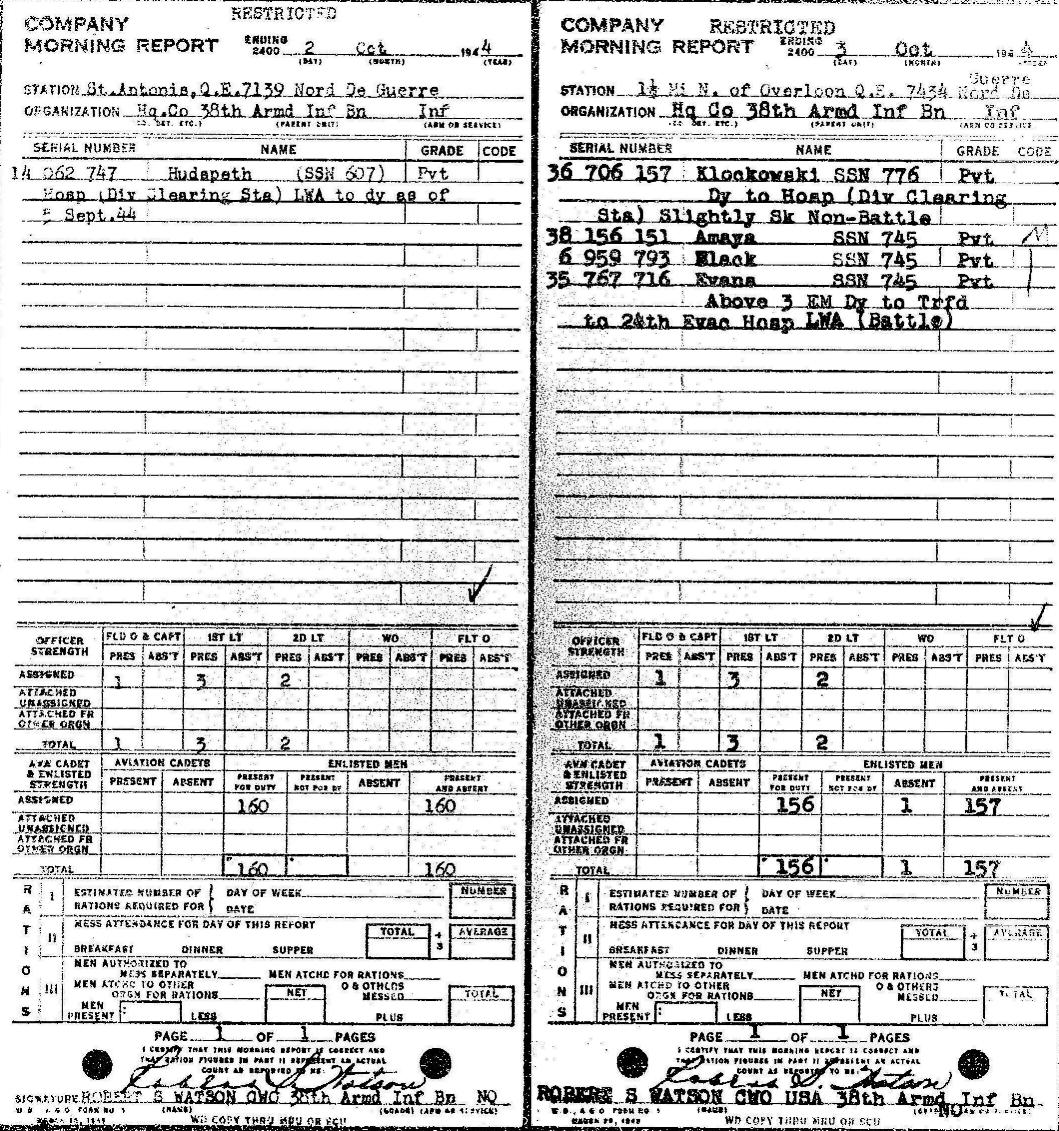 RESTRICTED
COMPANY
MORNING REPORT ENDING 2400 2 Oct 1944
(DAY) (MONTH) (YEAR)
STATION St.Antonis,Q.E.7139 Nord De Guerre
ORGANIZATION Hq.Co 38th Armd Inf Bn Inf
(CO. DET. ETC.) (PARENT UNIT) (ARM OR SERVICE)
SERIAL NUMBER NAME GRADE CODE
14 062 747 Hudspeth (SSN 607) Pvt
Hosp (Div Clearing Sta) LWA to dy as of
5 Sept.44
OFFICER STRENGTH FLD O & CAPT 1ST LT 2D LT WO FLT O
PRES ABS'T PRES ABS'T PRES ABS'T PRES ABS'T PRES ABS'T
ASSIGNED 1 3 2
ATTACHED UNASSIGNED
ATTACHED FR OTHER ORGN
TOTAL 1 3 2
AVN CADET & ENLISTED STRENGTH AVIATION CADETS ENLISTED MEN
PRESENT ABSENT PRESENT FOR DUTY PRESENT NOT FOR DY ABSENT PRESENT AND ABSENT
ASSIGNED 160 160
ATTACHED UNASSIGNED
ATTACHED FR OTHER ORGN
TOTAL 160 160
RATIONS
I ESTIMATED NUMBER OF RATIONS REQUIRED FOR DAY OF WEEK DATE NUMBER
II MESS ATTENDANCE FOR DAY OF THIS REPORT TOTAL ÷ 3 AVERAGE
BREAKFAST DINNER SUPPER
III MEN AUTHORIZED TO MESS SEPARATELY MEN ATCHD FOR RATIONS
MEN ATCHD TO OTHER ORGN FOR RATIONS NET O & OTHERS MESSED TOTAL
MEN PRESENT LESS PLUS
PAGE 1 OF 1 PAGES
I CERTIFY THAT THIS MORNING REPORT IS CORRECT AND
THAT RATION FIGURES IN PART II REPRESENT AN ACTUAL
COUNT AS REPORTED TO ME:
Robert S. Watson
SIGNATURE ROBERT S WATSON CWO 38th Armd Inf Bn NQ
(NAME) (GRADE) (ARM OR SERVICE)
W.D., A.G.O. FORM NO. 1
WD COPY THRU MRU OR SCU
RESTRICTED
COMPANY
MORNING REPORT ENDING 2400 3 Oct 1944
(DAY) (MONTH) (YEAR)
Guerre
STATION 1½ Mi N. of Overloon Q.E. 7434 Nord De
ORGANIZATION Hq Co 38th Armd Inf Bn Inf
(CO. DET. ETC.) (PARENT UNIT) (ARM OR SERVICE)
SERIAL NUMBER NAME GRADE CODE
36 706 157 Klockowski SSN 776 Pvt
Dy to Hosp (Div Clearing
Sta) Slightly Sk Non-Battle
38 156 151 Amaya SSN 745 Pvt
6 959 793 Black SSN 745 Pvt
35 767 716 Evans SSN 745 Pvt
Above 3 EM Dy to Trfd
to 24th Evac Hosp LWA (Battle)
OFFICER STRENGTH FLD O & CAPT 1ST LT 2D LT WO FLT O
PRES ABS'T PRES ABS'T PRES ABS'T PRES ABS'T PRES ABS'T
ASSIGNED 1 3 2
ATTACHED UNASSIGNED
ATTACHED FR OTHER ORGN
TOTAL 1 3 2
AVN CADET & ENLISTED STRENGTH AVIATION CADETS ENLISTED MEN
PRESENT ABSENT PRESENT FOR DUTY PRESENT NOT FOR DY ABSENT PRESENT AND ABSENT
ASSIGNED 156 1 157
ATTACHED UNASSIGNED
ATTACHED FR OTHER ORGN
TOTAL 156 1 157
RATIONS
I ESTIMATED NUMBER OF RATIONS REQUIRED FOR DAY OF WEEK DATE NUMBER
II MESS ATTENDANCE FOR DAY OF THIS REPORT TOTAL ÷ 3 AVERAGE
BREAKFAST DINNER SUPPER
III MEN AUTHORIZED TO MESS SEPARATELY MEN ATCHD FOR RATIONS
MEN ATCHD TO OTHER ORGN FOR RATIONS NET O & OTHERS MESSED TOTAL
MEN PRESENT LESS PLUS
PAGE 1 OF 1 PAGES
I CERTIFY THAT THIS MORNING REPORT IS CORRECT AND
THAT RATION FIGURES IN PART II REPRESENT AN ACTUAL
COUNT AS REPORTED TO ME:
Robert S. Watson
ROBERT S WATSON CWO USA 38th Armd Inf Bn
NQ
W.D., A.G.O. FORM NO. 1 (NAME)
WD COPY THRU MRU OR SCU